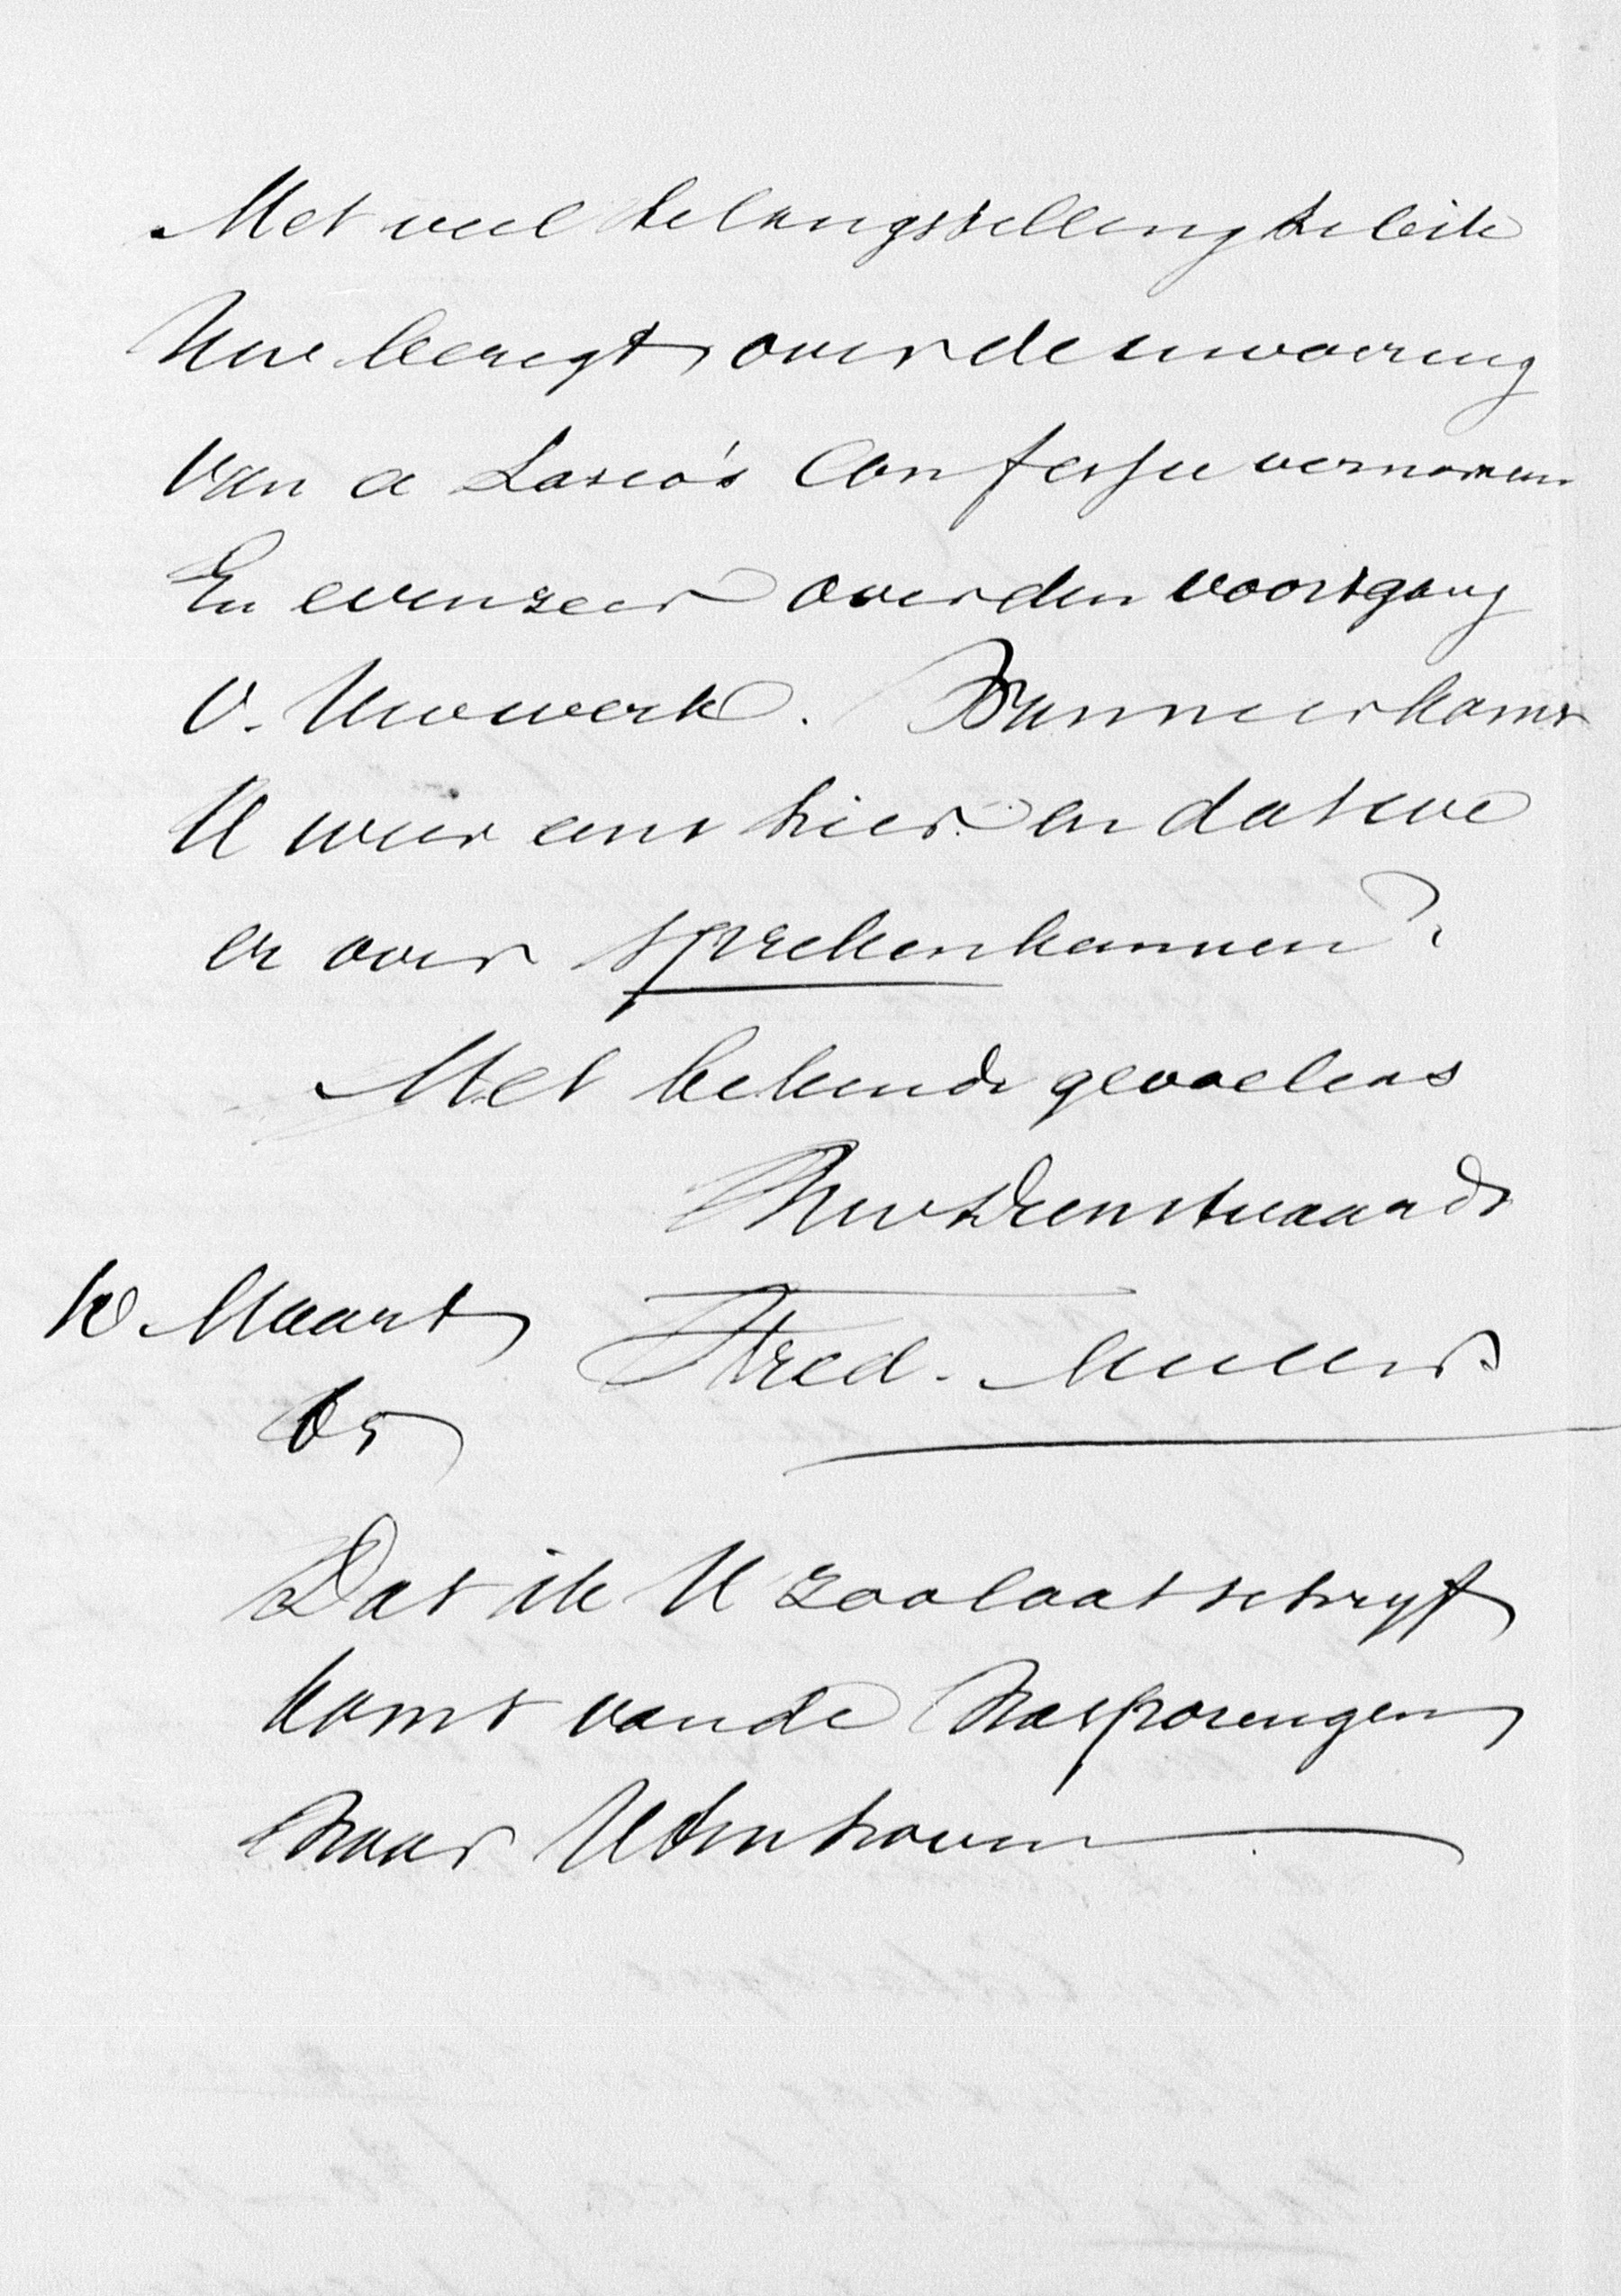 Met veel belangstelling heb ik
Uw beregt over de invoering
van a Lasco's Confessie vernomen
En evenzeer over den voortgang
v. Uw werk. Wanneer komt
U weer eens hier en dat we
er over spreken kunnen?
Met bekende gevoelens
Uw Dienstwaardr
10 Maart Fred. Muller
65
Dat ik U zoo laat schryf
komt van de Nasporingen
Naar Utenhoven